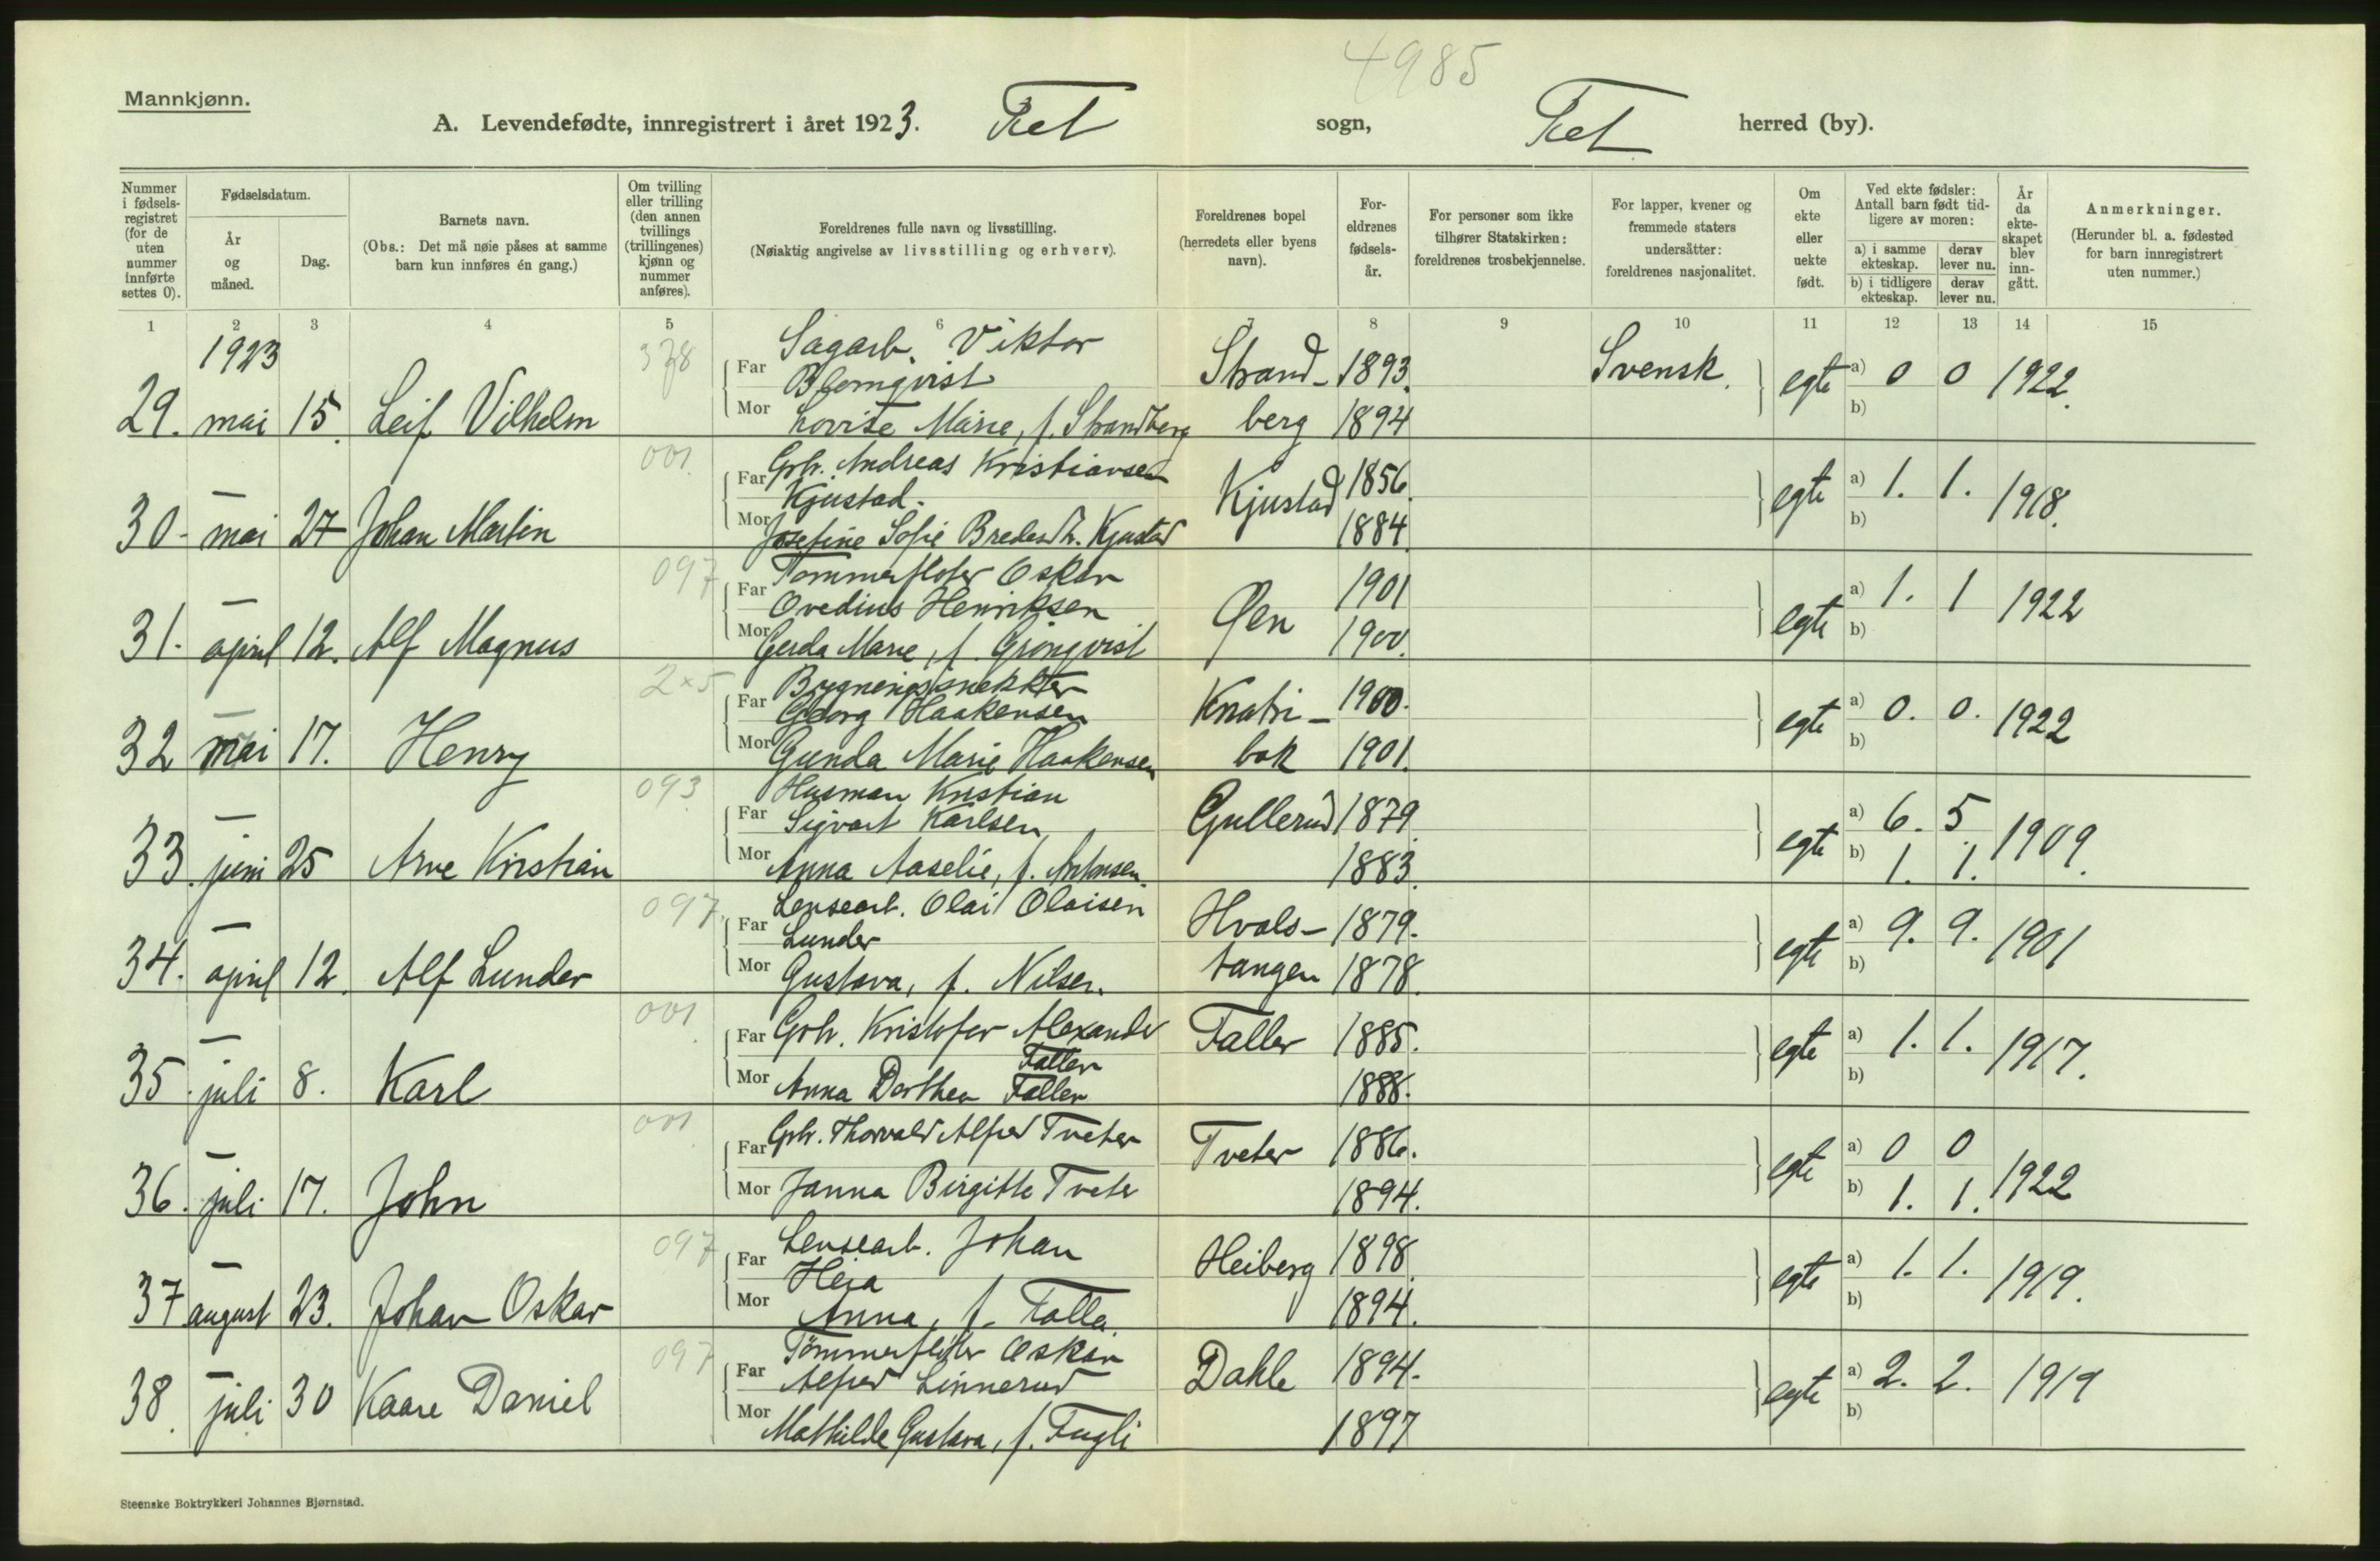 4985
Mannkjønn.
A. Levendefødte, innregistrert i året 1923. Fet sogn, Fet herred (by).
Nummer i fødsels-registret (for de uten nummer innførte settes 0).
Fødselsdatum.
År og måned.
Dag.
Barnets navn.
(Obs.: Det må nøie påses at samme barn kun innføres én gang.)
Om tvilling eller trilling (den annen tvillings (trillingenes) kjønn og nummer anføres).
Foreldrenes fulle navn og livsstilling.
(Nøiaktig angivelse av livsstilling og erhverv).
Foreldrenes bopel (herredets eller byens navn).
For-eldrenes fødsels-år.
For personer som ikke tilhører Statskirken: foreldrenes trosbekjennelse.
For lapper, kvener og fremmede staters undersåtter: foreldrenes nasjonalitet.
Om ekte eller uekte født.
Ved ekte fødsler: Antall barn født tid-ligere av moren:
a) i samme ekteskap. derav lever nu.
b) i tidligere ekteskap. derav lever nu.
År da ekte-skapet blev inn-gått.
Anmerkninger.
(Herunder bl. a. fødested for barn innregistrert uten nummer.)
1 2 3 4 5 6 7 8 9 10 11 12 13 14 15
1923
29. mai 15. Leif Vilhelm 378
Far Sagarb. Viktor Blomqvist Strand- 1893. Svensk. egte a) 0 0 1922.
Mor Lovise Marie, f. Strandberg berg 1894 b)
30 - mai 27 Johan Martin 001
Far Grb. Andreas Kristiansen Kjustad. Kjustad 1856. egte a) 1. 1. 1918.
Mor Josefine Sofie Kjustad 1884. b)
31. - april 12. Alf Magnus 097
Far Tømmerfløter Oskar Ovedius Henriksen Øen 1901 egte a) 1. 1 1922
Mor Gerda Marie, f. Grönqvist 1900. b)
32 - mai 17. Henry 2x5
Far Bygningssnekker Georg Haakensen Knatri- 1900. egte a) 0. 0. 1922
Mor Gunda Marie Haakensen bak 1901. b)
33. - juni 25 Arve Kristian 093
Far Husman Kristian Sigvart Karlsen, Gullerud 1879. egte a) 6. 5. 1909.
Mor Anna Aaselie, f. Antonsen. 1883. b) 1. 1.
34. - april 12. Alf Lunder 097
Far Lensearb. Olai Olaisen Lunder Hvals- 1879. egte a) 9. 9. 1901
Mor Gustava, f. Nilsen. tangen 1878. b)
35. - juli 8. Karl 001
Far Grb. Kristofer Alexander Faller Faller 1885. egte a) 1. 1. 1917.
Mor Anna Dorthea Faller 1888. b)
36. - juli 17. John 001
Far Grb. Thorvald Alfred Tveter Tveter 1886. egte a) 0 0 1922
Mor Janna Birgitte Tveter 1894. b) 1. 1.
37 - august 23. Johan Oskar 097
Far Lensearb. Johan Heia Heiberg 1898. egte a) 1. 1. 1919.
Mor Anna, f. Falla. 1894. b)
38. - juli 30 Kaare Daniel 097
Far Tømmerfløter Oskar Alfred Linnerud Dahle 1894. egte a) 2. 2. 1919
Mor Mathilde Gustava, f. Fugli 1897 b)
Steenske Boktrykkeri Johannes Bjørnstad.